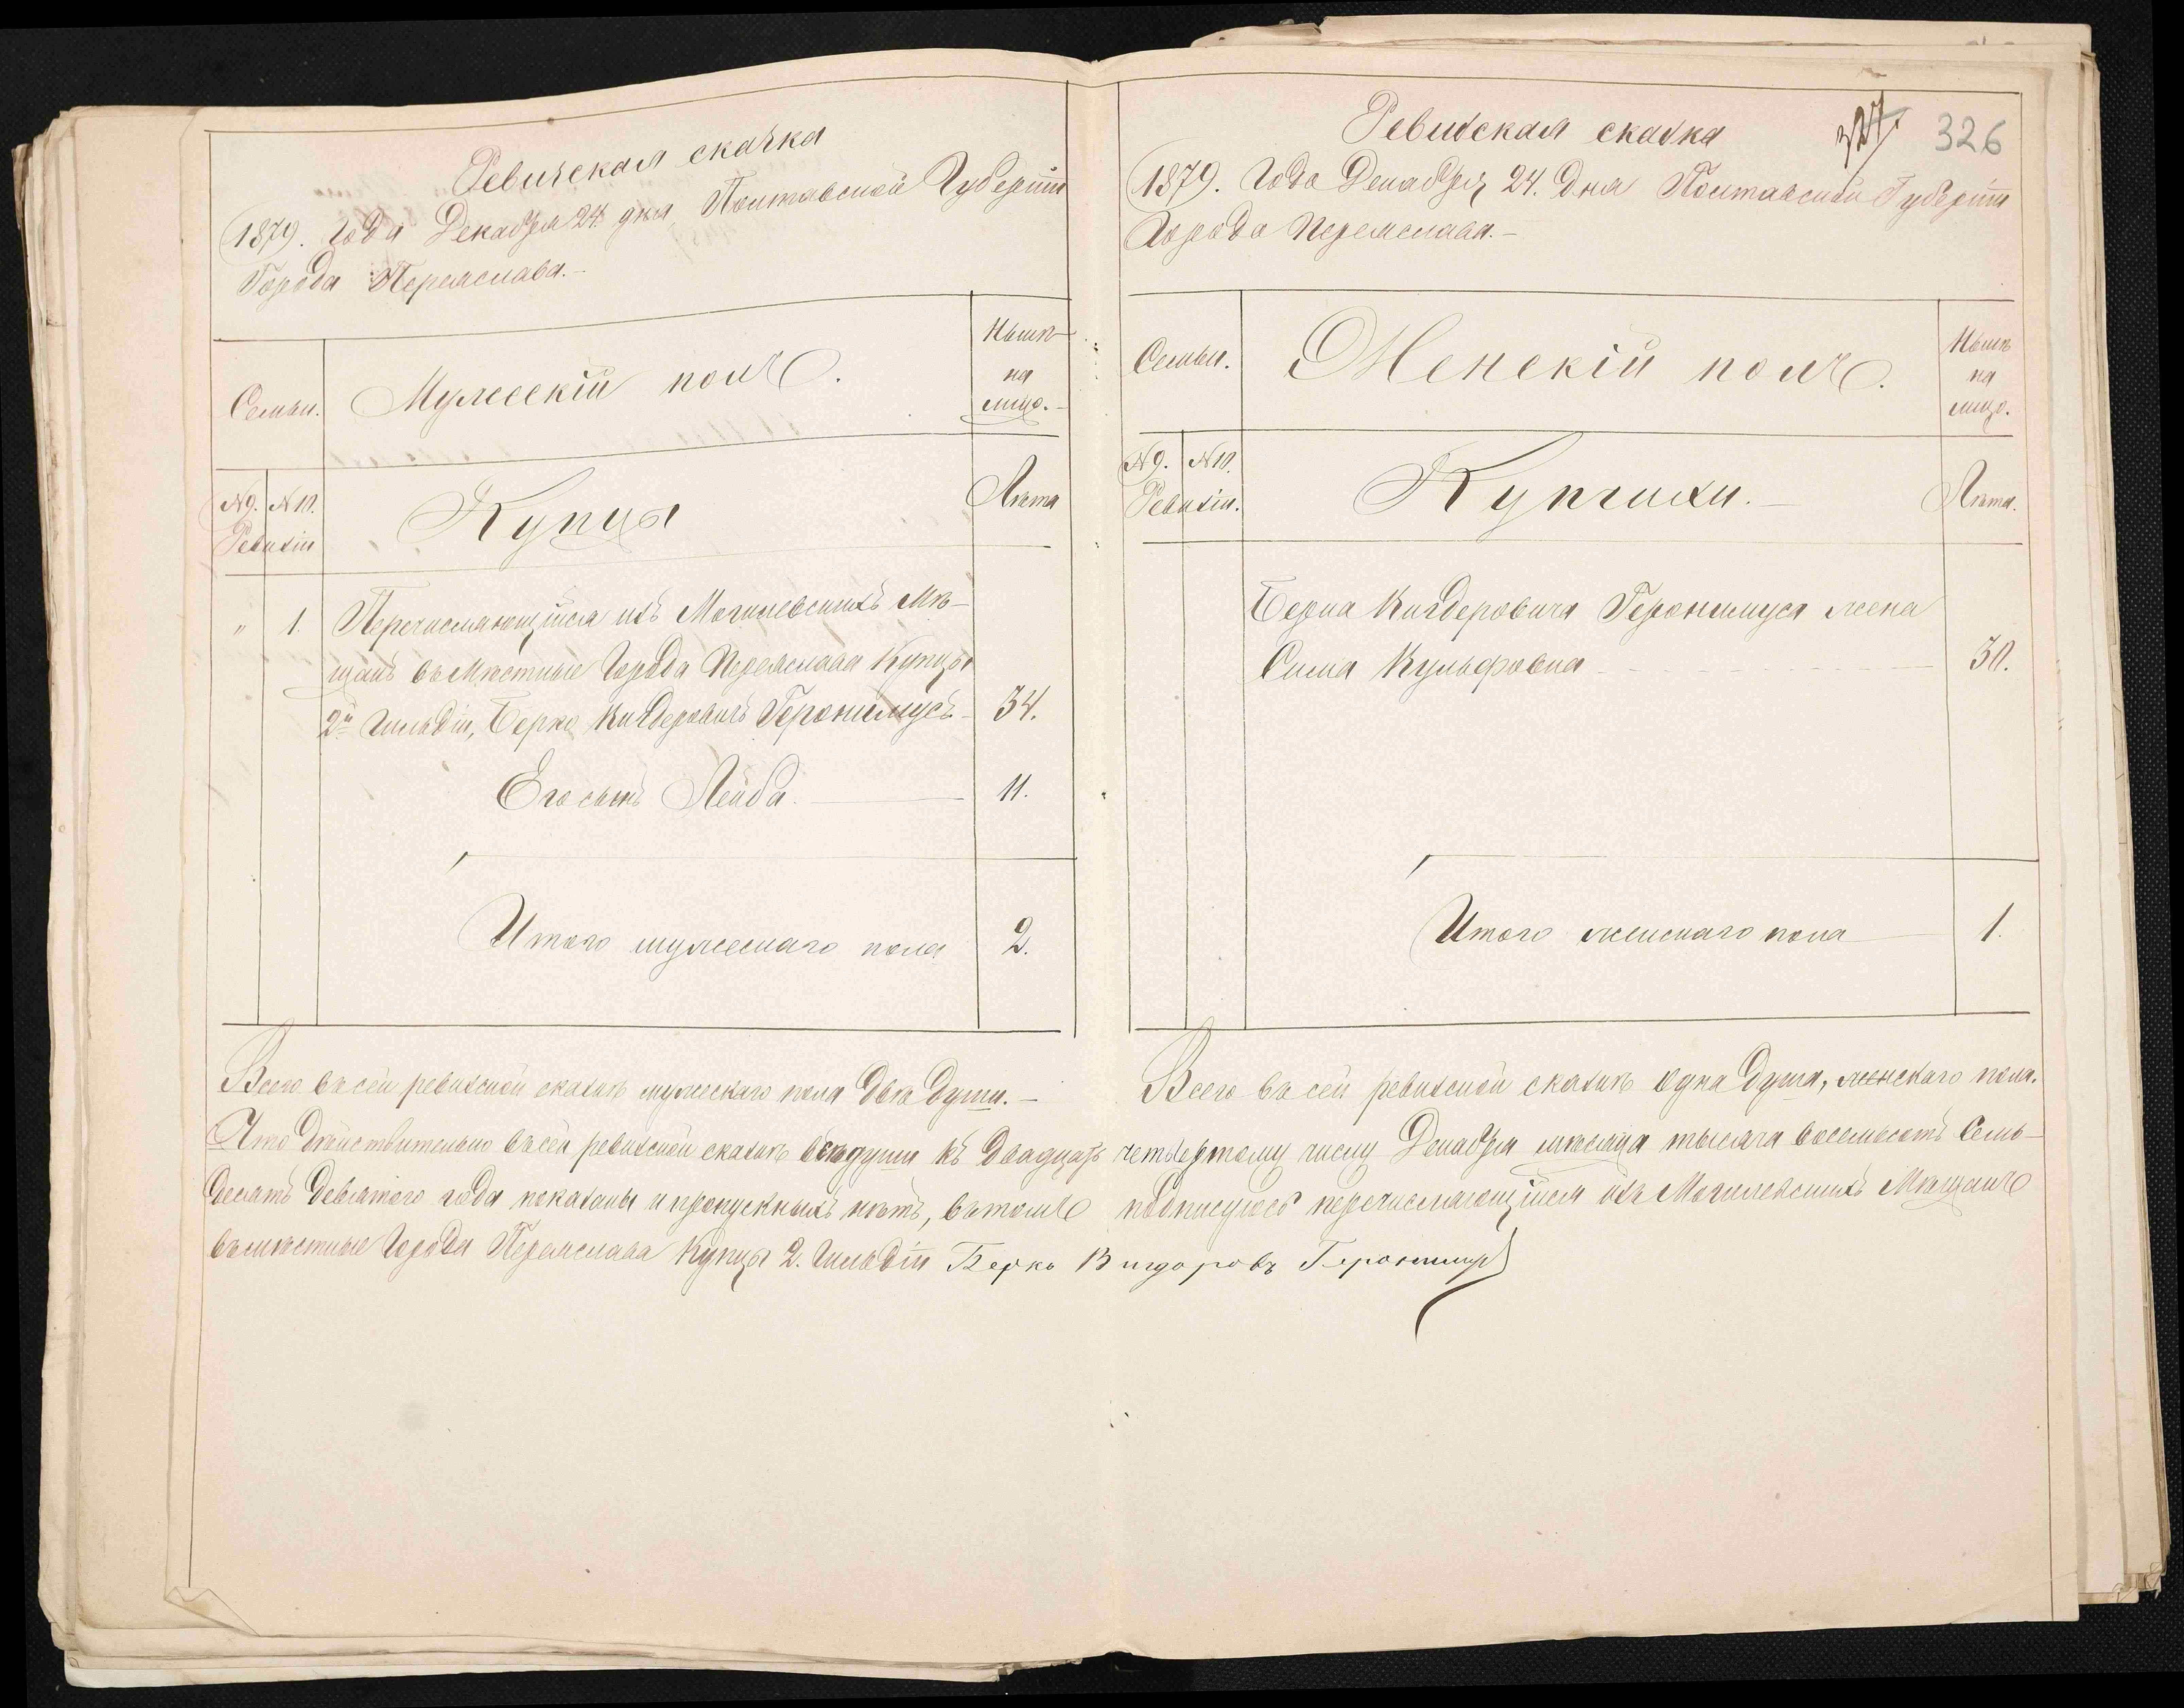 Ревизская сказка
1879. Года Декабря 24 дня Полтавской Губерніи
Города Переяслава.–
Семьи.
Мужескій полъ.
Нынѣ
на
лицо.–
№ 9. № 10.
Ревизіи
Купцы
Лѣта
" 1. Перечисляющійся изъ Могилевскихъ Мѣ–
щанъ въ мѣстные Города Переяслава Купцы
2й Гильдіи, Берко Вигдоровичъ Геронимусъ – 34.
Его сынъ Лейба. 11.
Итого мужескаго пола 2.
Всего въ сей ревизской сказкѣ мужескаго пола двѣ души.–
Ревизская сказка
327. 326
1879. Года Декабря 24. Дня Полтавской Губерніи
Города Переяслава.–
Семьи.
Женскій полъ.
Нынѣ
на
лицо.
№ 9. № 10.
Ревизіи.
Купчихи.–
Лѣта.
Берка Вигдеровича Геронимуса жена
Сима Вульфовна 30.
Итого женскаго пола 1.
Всего въ сей ревизской сказкѣ одна душа, женскаго пола.
Что дѣйствительно въ сей ревизской сказкѣ всѣ души къ двадцать четвертому числу Декабря мѣсяца тысяча восемьсотъ семь–
десятъ девятого года показаны и пропускныхъ нѣтъ, въ томъ подписуюсъ перечисляющійся изъ Могилевскихъ Мѣщанъ
въ мѣстные Города Переяслава Купцы 2. Гильдіи Берко Вигдоровъ Геронимусъ